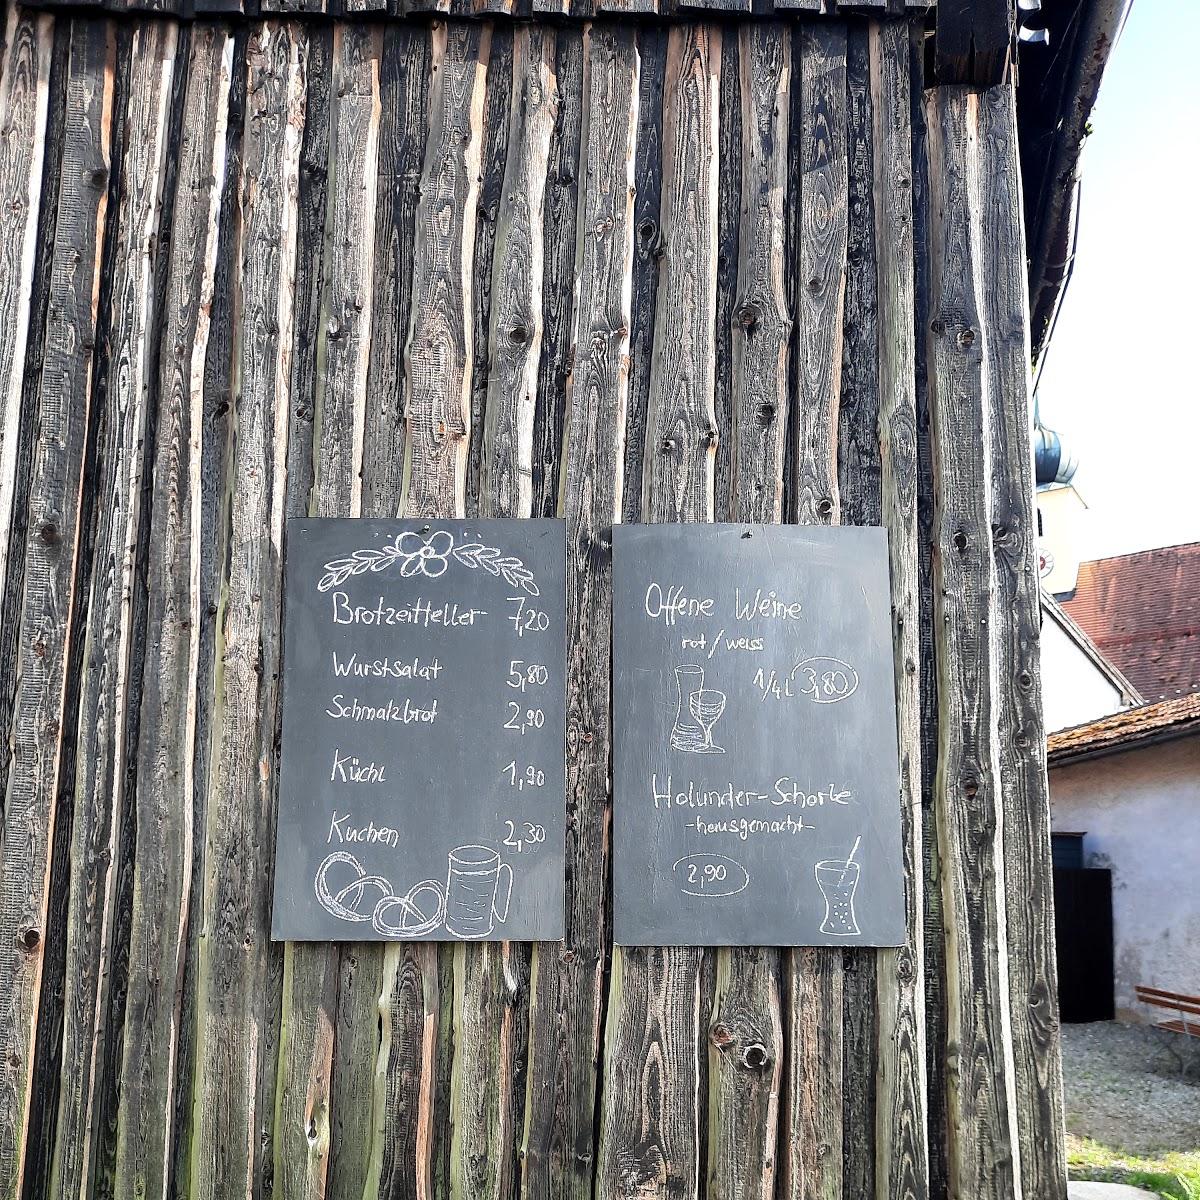 Brotzeitteller 7,20
Wurstsalat 5,80
Schmalzbrot 2,90
Küchl 1,90
Kuchen 2,30
Offene Weine
rot/weiss
1/4 L 3,80
Holunder-Schorle
-hausgemacht-
2,90